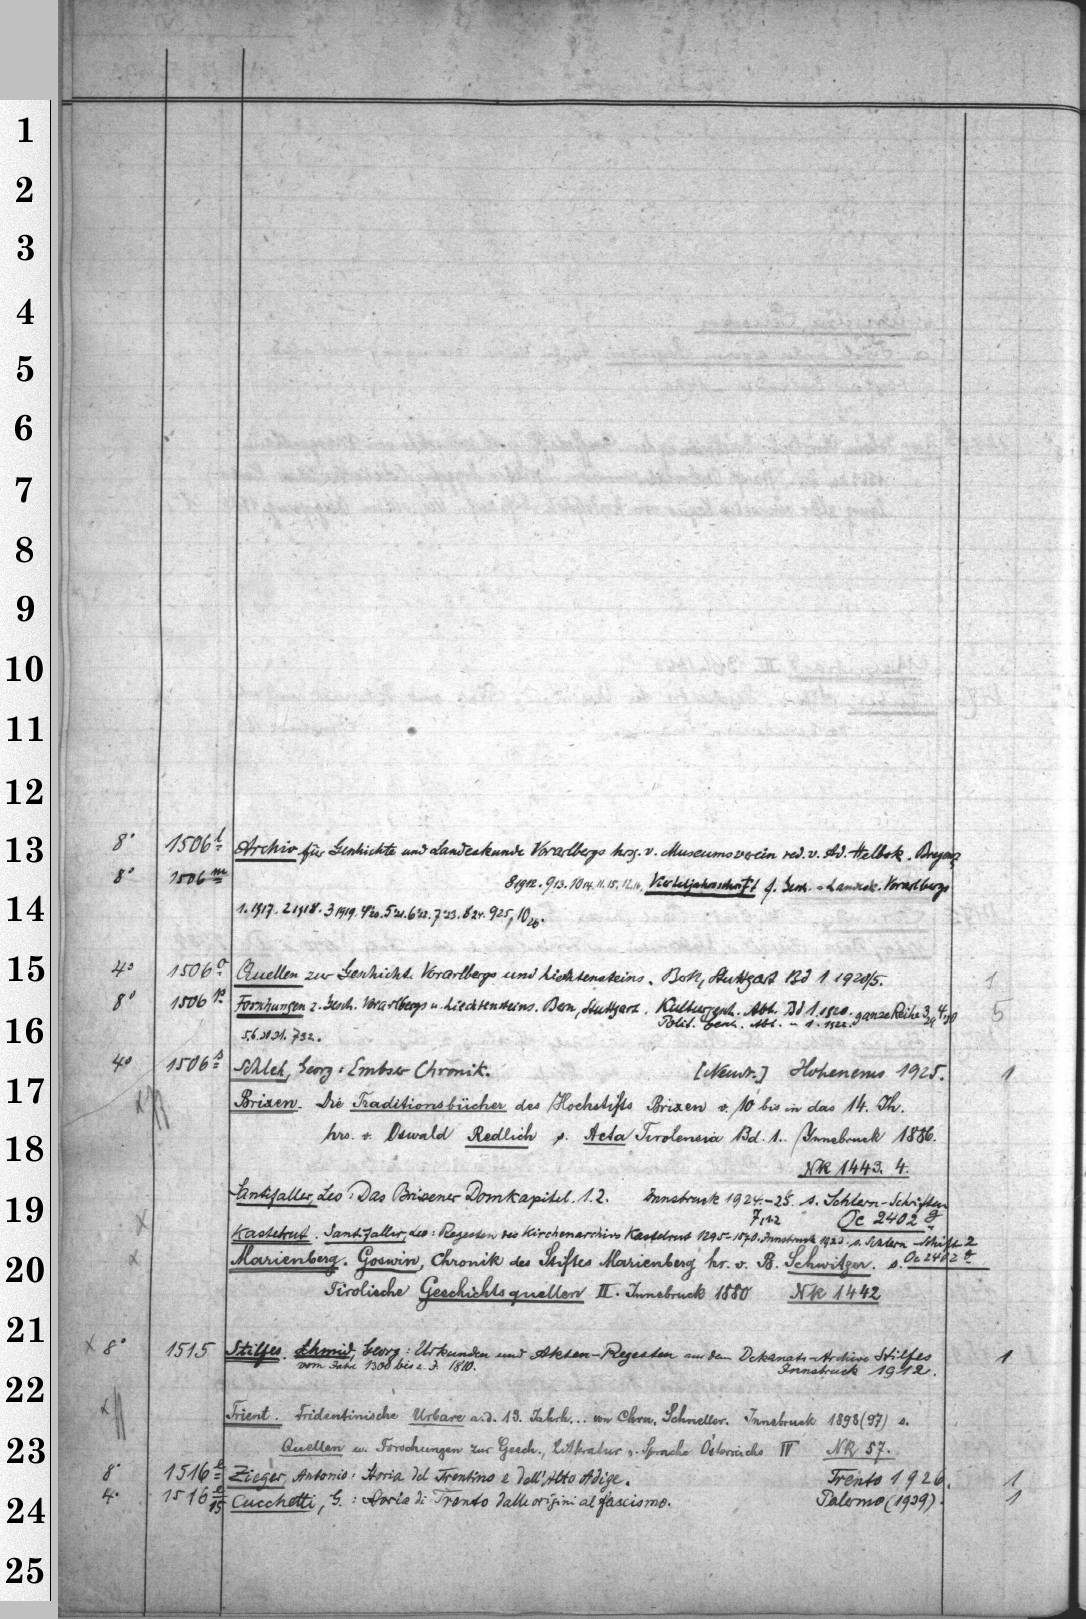 1
2
3
4
5
6
7
8
9
10
11
12
13
14
15
16
17
18
19
20
21
22
23
24
25
8° 1506 l Archiv für Geschichte und Landeskunde Vorarlbergs hrsg. v. Museumsverein red. v. Ad. Helbok. Bregenz
8° 1506 m 8 1912. 9 13. 10 14. 11. 15. 12. 16. Vierteljahrsschrift f. Gesch. u. Landesk. Vorarlbergs
1. 1917. 2 1918. 3 1919. 4 20. 5 21. 6 22. 7 23. 8 24. 9 25, 10 26.
4° 1506 o Quellen zur Geschicht. Vorarlbergs und Liechtensteins. Bern, Stuttgart Bd 1 1920/5. 1
8° 1506 p Forschungen z. Gesch. Vorarlbergs u. Liechtensteins. Bern, Stuttgart. Kulturgesch. Abt. Bd 1. 1920. ganze Reihe 3, 29 4. 30 5
Polit. Gesch. Abt. " 1. 1922.
5.6.30.31. 7 32.
4° 1506 s Schleh, Georg: Embser Chronik. [Neudr.] Hohenems 1925. 1
Brixen. Die Traditionsbücher des Hochstifts Brixen v. 10 bis in das 14. Jh.
hrs. v. Oswald Redlich s. Acta Tirolensia Bd. 1. Innsbruck 1886.
NK 1443. 4.
Santifaller, Leo: Das Brixener Domkapitel. 1.2. Innsbruck 1924.-25. s. Schlern-Schriften
7, 1.2 Oc 2402 g
Kastelrut. Santifaller, Leo: Regesten des Kirchenarchivs Kastelrut 1295-1570. Innsbruck 1923. s. Schlern-Schift. 2
Marienberg. Goswin, Chronik des Stiftes Marienberg hr. v. B. Schwitzer. s. Oc 2402 g
Tirolische Geschichtsquellen II. Innsbruck 1880 NK 1442
x 8° 1515 Stilfes. Schmid, Georg: Urkunden und Akten-Regesten aus dem Dekanats-Archive Stilfes 1
vom Jahr 1300 bis z. J. 1810. Innsbruck 1912.
Trient. Tridentinische Urbare a. d. 13. Jahrh... von Chrn. Schneller. Innsbruck 1898 (97) s.
Quellen u. Forschungen zur Gesch., Litteratur u. Sprache Österreichs IV NR 57.
8° 1516 e Zieger, Antonio: Storia del Trentino e dell'Alto Adige. Trento 1926. 1
4° 1516 e 15 Cucchetti, G.: Storia di Trento dalle origini al fascismo. Palermo (1939). 1